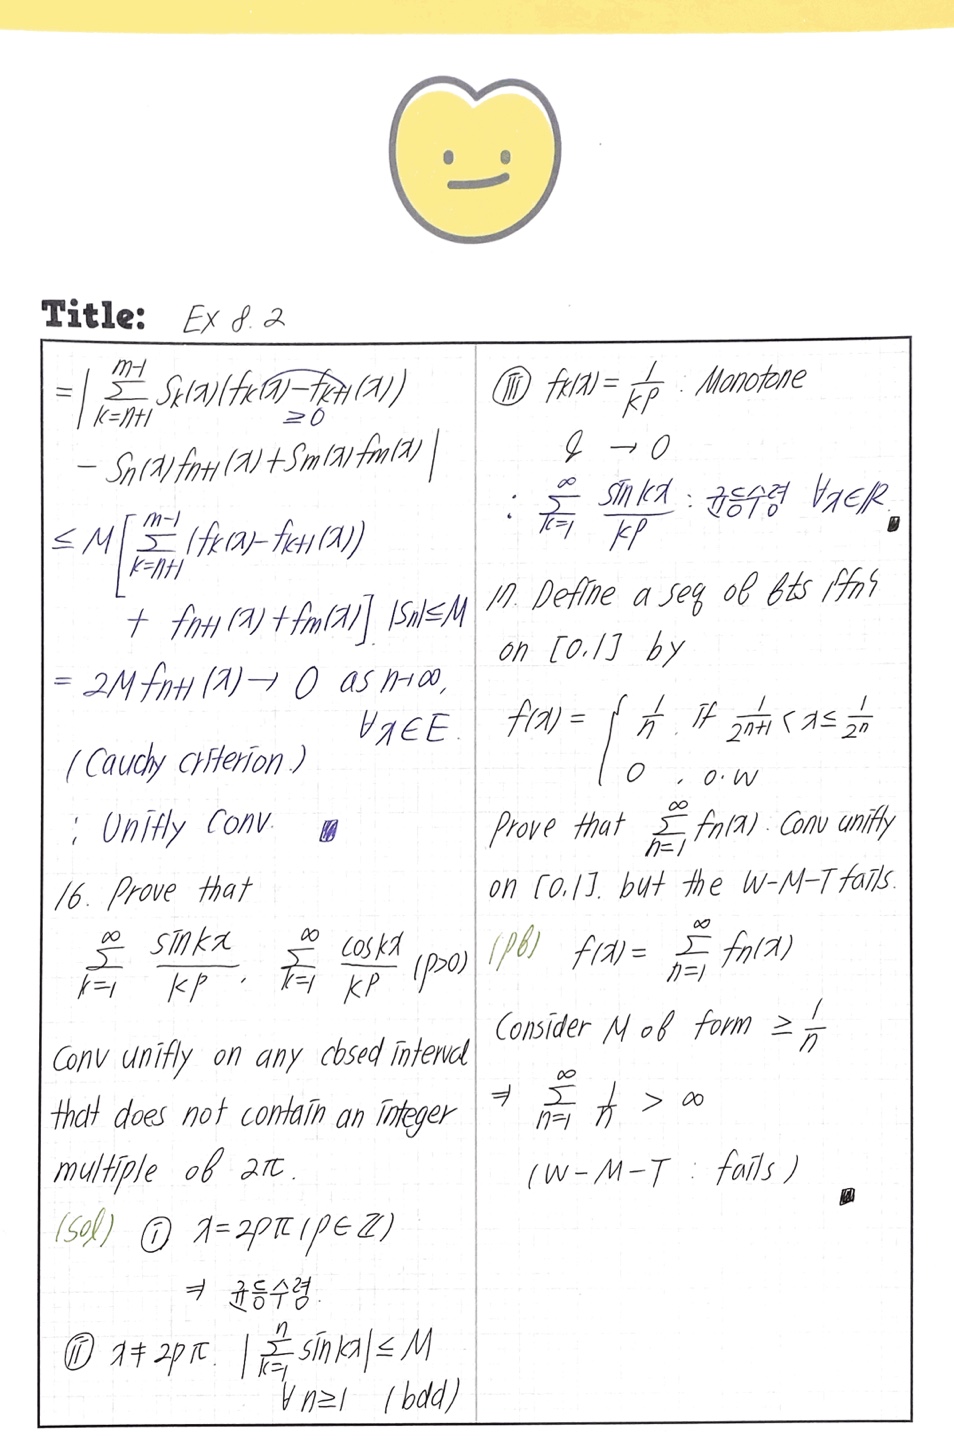 Title: Ex 8.2
= | Σ_{k=n+1}^{m-1} Sk(x)(fk(x)-fk+1(x))
≥0
- Sn(x)fn+1(x)+Sm(x)fm(x) |
≤ M [ Σ_{k=n+1}^{m-1} (fk(x)-fk+1(x))
+ fn+1(x)+fm(x) ]. |Sn|≤M
= 2Mfn+1(x) → 0 as n→∞,
∀x∈E.
(Cauchy criterion.)
∴ Unifly Conv.
16. Prove that
Σ_{k=1}^{∞} sinkx/k^p , Σ_{k=1}^{∞} coskx/k^p (p>0)
Conv unifly on any closed interval
that does not contain an integer
multiple of 2π.
(sol) ⓘ x=2pπ (p∈ℤ)
⇒ 균등수렴.
ⓘⓘ x≠2pπ. | Σ_{k=1}^{n} sinkx | ≤ M
∀n≥1 (bdd)
ⓘⓘⓘ fk(x) = 1/k^p : Monotone
& → 0
∴ Σ_{k=1}^{∞} sinkx/k^p :균등수렴 ∀x∈ℝ.
17. Define a seq of fts {fn}
on [0,1] by
f(x) = { 1/n . if 1/2n+1 < x ≤ 1/2n
0 , o.w
Prove that Σ_{n=1}^{∞} fn(x). Conv unifly
on [0,1]. but the W-M-T fails.
(pf) f(x) = Σ_{n=1}^{∞} fn(x)
Consider M of form ≥ 1/n
⇒ Σ_{n=1}^{∞} 1/n > ∞
(W-M-T : fails)